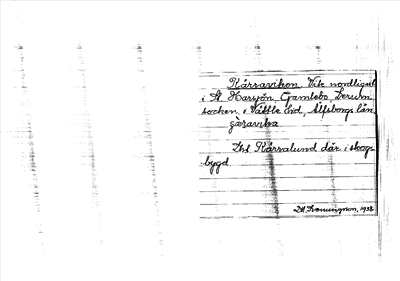 Kårvaviken. Vik nordligast
i St. Harsjön, Gamlebo, Lerum
socken, i Vättle hd, Älfsborgs län
gåravika
Jfr Kårvalund där i skogs
bygd
1938